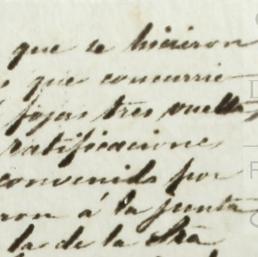 que se hicieron
que concurrie
fojas tres vuelta,
ratificacione
convenido por
ron á la junta
la de la Sra